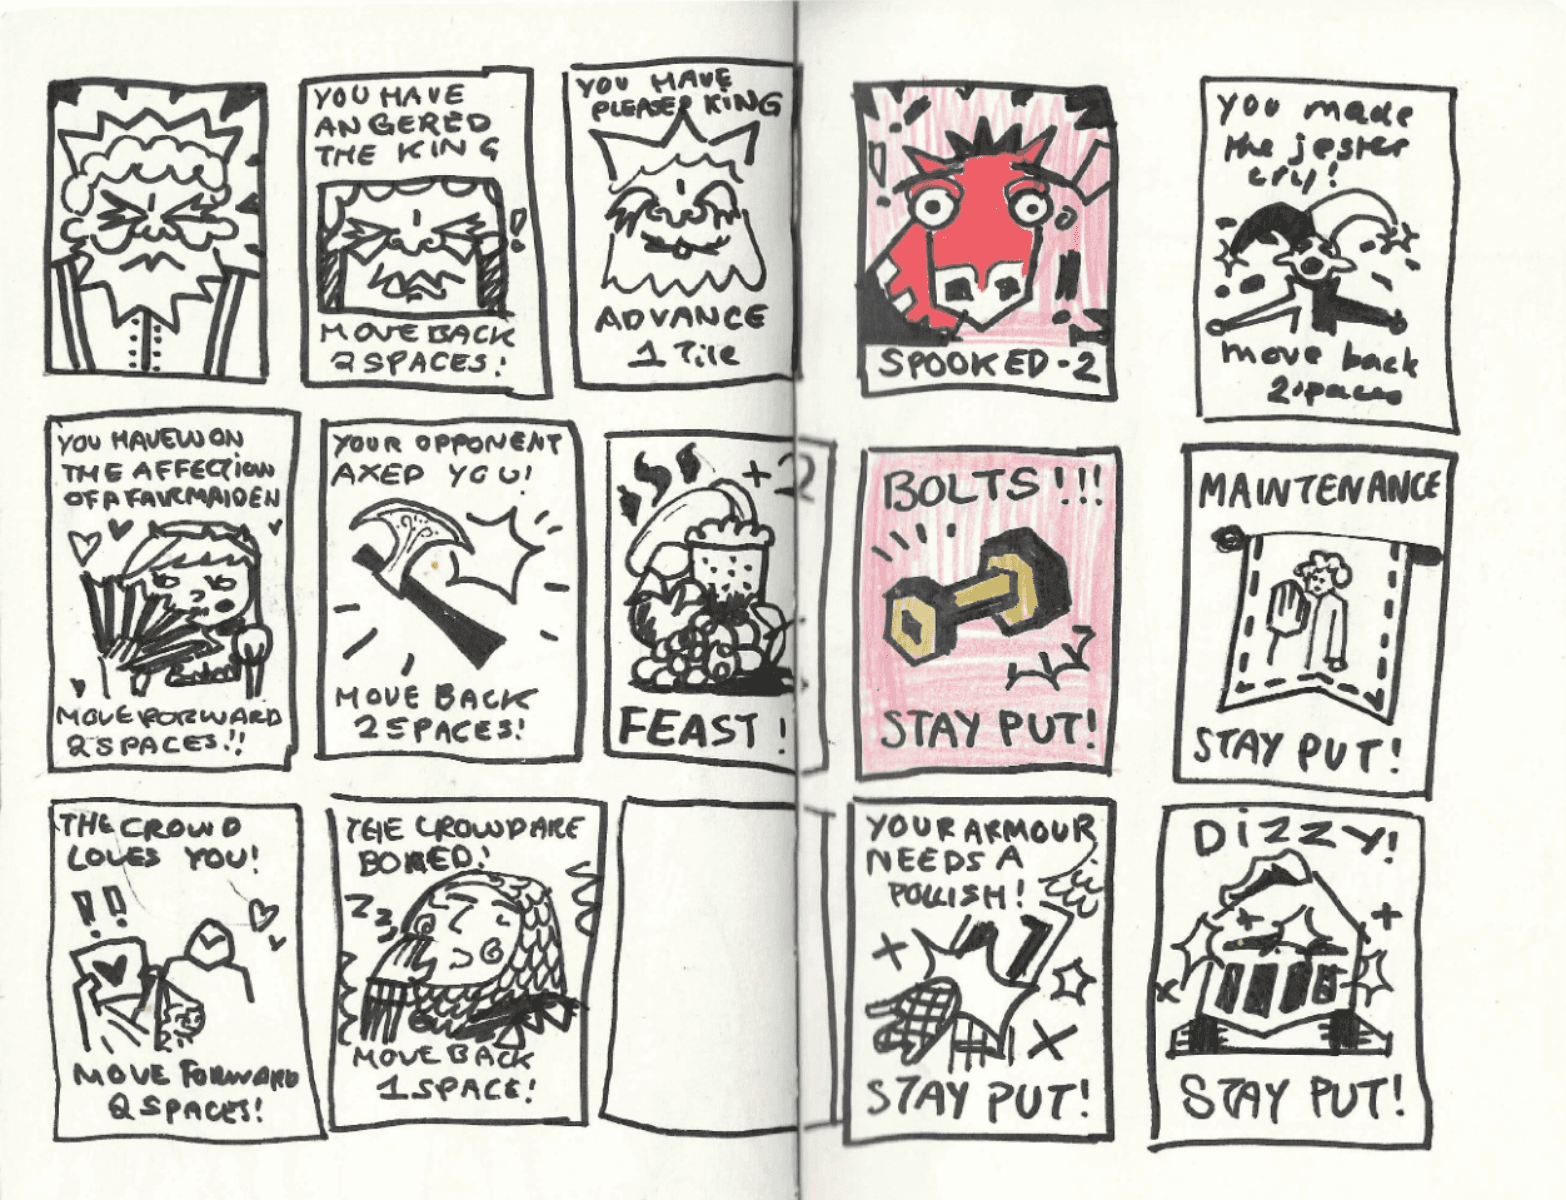 YOU HAVE
ANGERED
THE KING
MOVE BACK
2 SPACES!
YOU HAVE
PLEASED KING
ADVANCE
1 Tile
SPOOKED -2
you made
the jester
cry!
move back
2 spaces
YOU HAVE WON
THE AFFECTION
OF A FAIR MAIDEN
MOVE FORWARD
2 SPACES!!
YOUR OPPONENT
AXED YOU!
MOVE BACK
2 SPACES!
+2
FEAST!
BOLTS!!!
STAY PUT!
MAINTENANCE
STAY PUT!
THE CROWD
LOVES YOU!
!!
MOVE FORWARD
2 SPACES!
THE CROWD ARE
BORED!
ZZZ
MOVE BACK
1 SPACE!
YOUR ARMOUR
NEEDS A
POLLISH!
STAY PUT!
DIZZY!
STAY PUT!